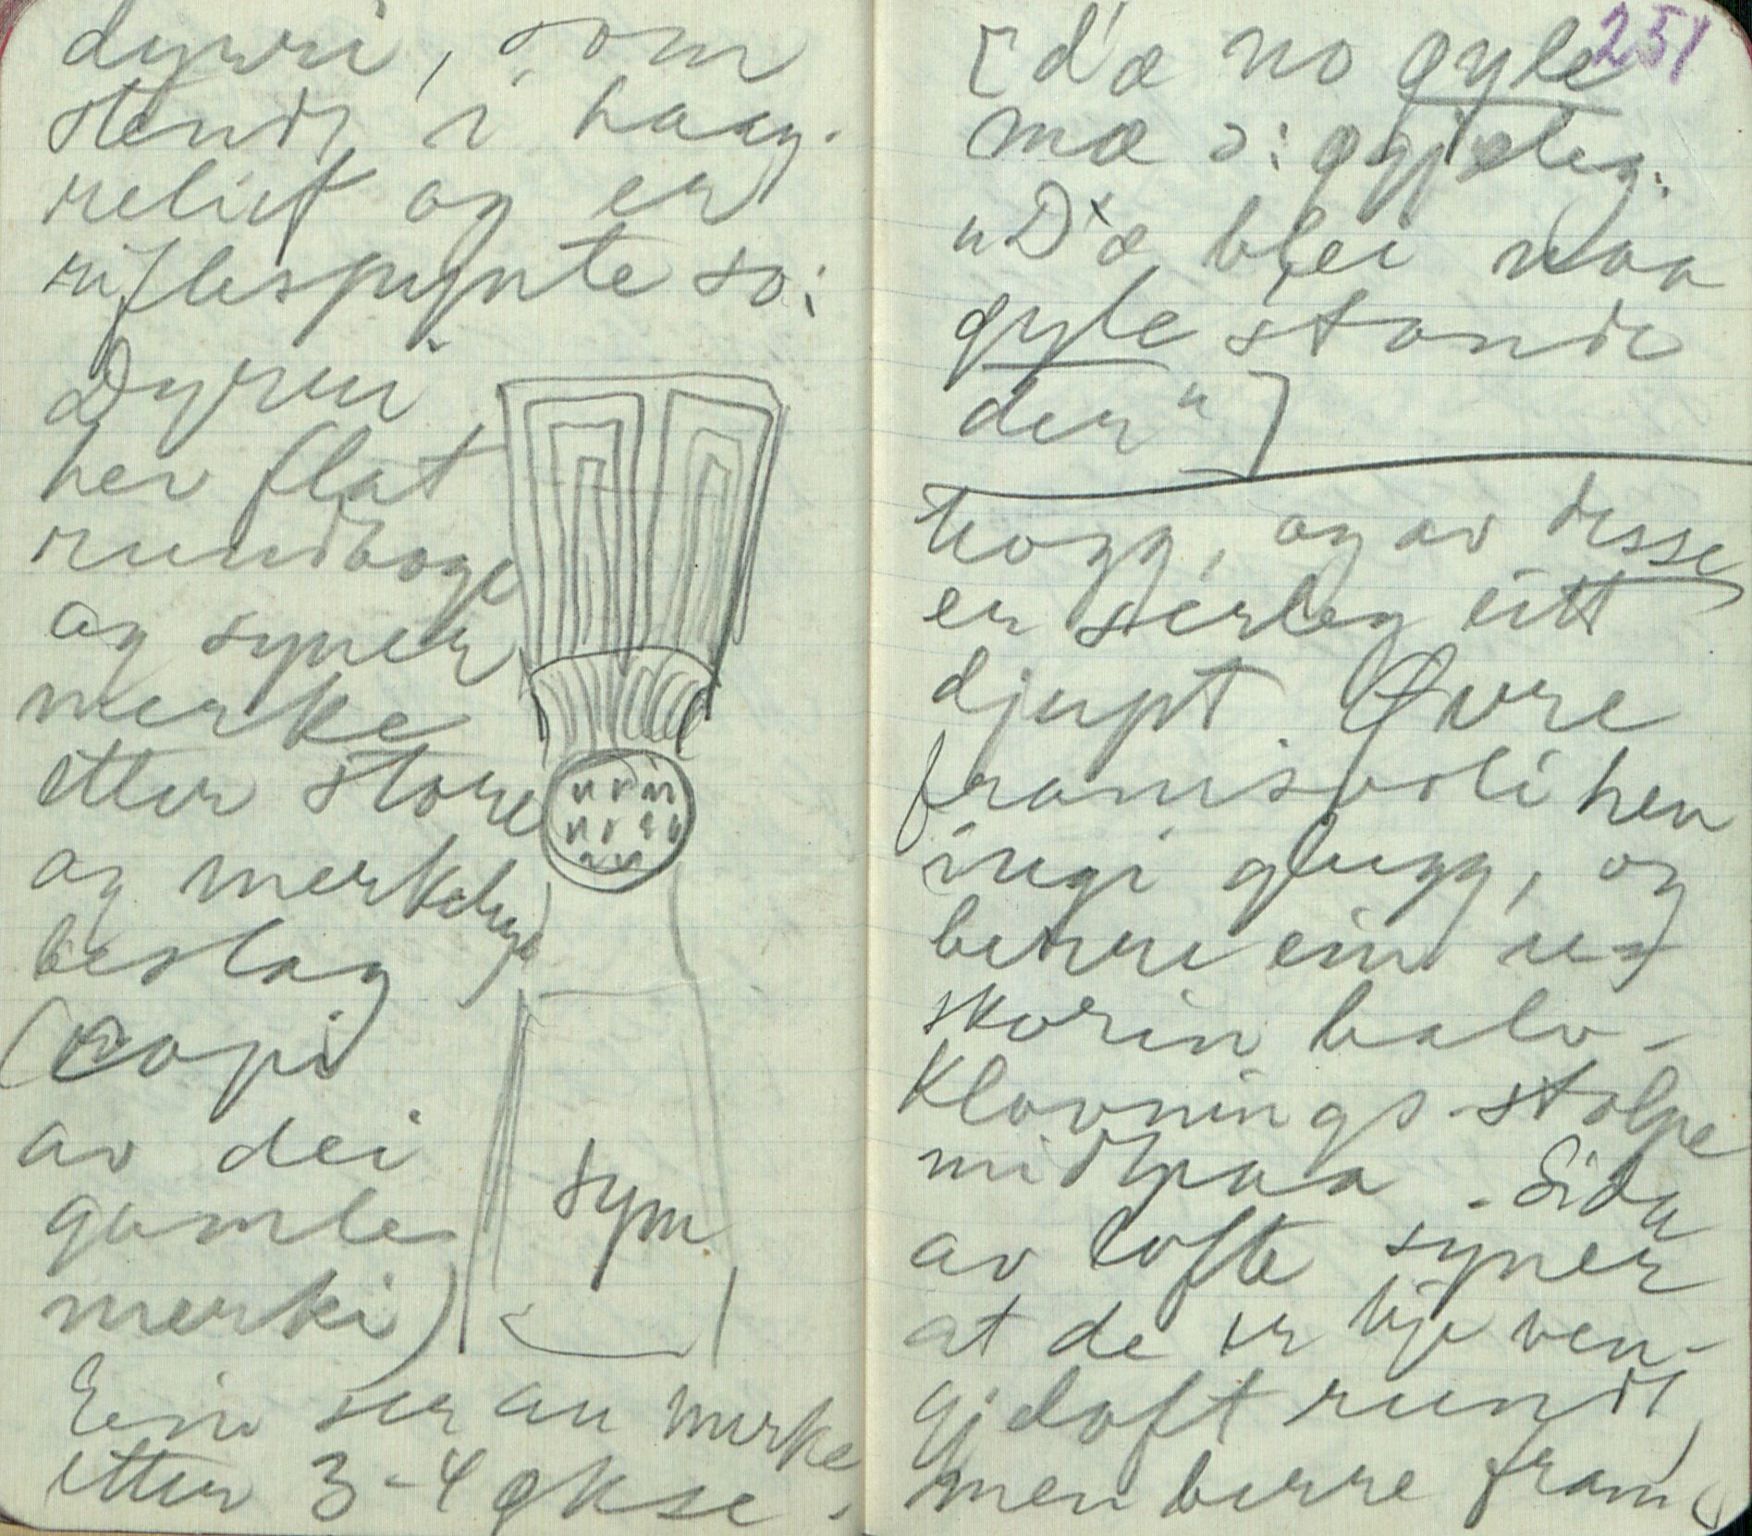 dyrri, som
stend i haag-
relieff og er
riflespynte so:
Dyrri
her flat
rundboge
og syner
merke
etter store
og merkelege
beslag
(Copi
av dei
gamle
merki)
sym
Ein ser au merke
etter 3-4 økse-
251
[d'æ no gyle
mæ ɔ: gyjeleg.
"D'æ blei naa
gyle stande
der"]
hogg, og av desse
er serleg eitt
djupt. Øvre
framsvoli hev
ingi glugg, og
berre ein u-
skorin halv-
klovnings-stolpe
midtpaa. Sida
av lofte syner
at de er ikje ven-
gjeloft rundt,
men berre fram